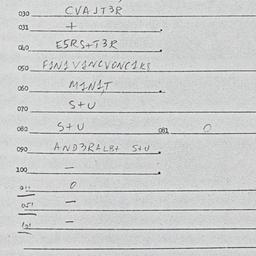 030 CVAJT3R
031 +
040 E5RS+T3R
050 F1N1V1NCVONC1KS
060 M1N1T
070 S+U
080 S+U 081 0
090 AND3RALB+ S+U
100 —
0
—
—